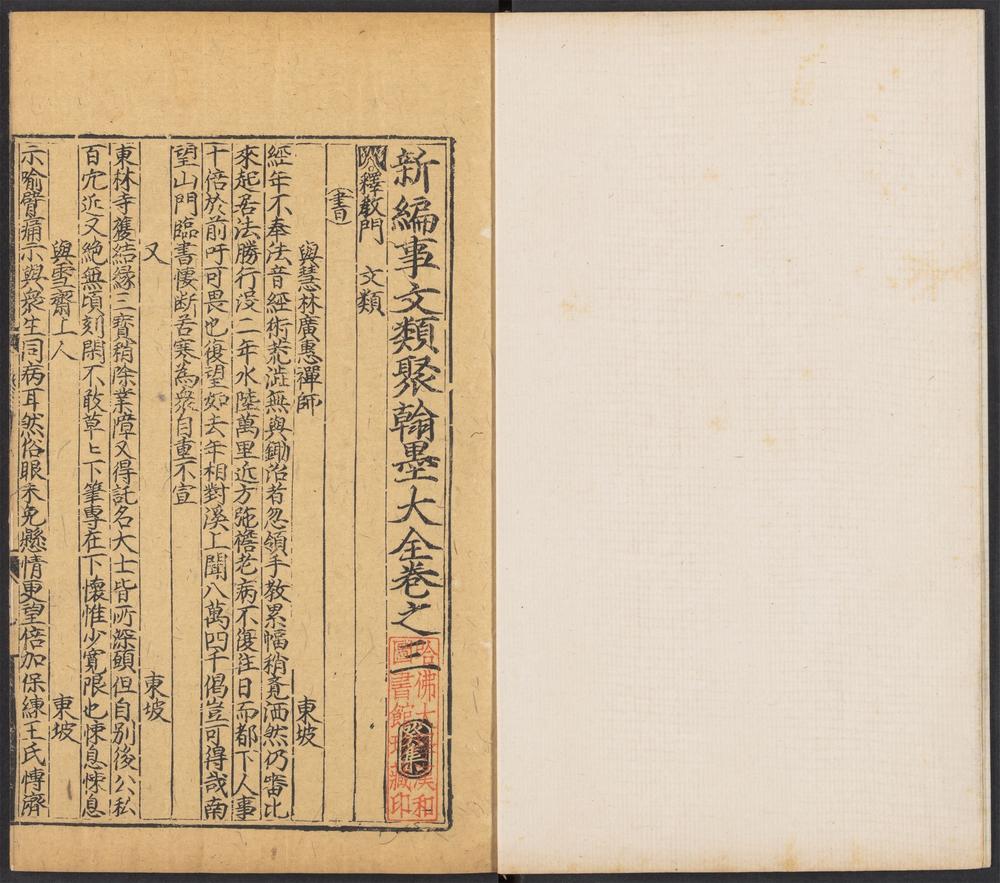 新編事文類聚翰墨大全卷之三
哈佛大學漢和圖書館珍藏印
釋教門 文類
書
與慧林廣惠禪師 東坡
經年不奉法音經術荒澁無與鋤治者忽領手教累幅稍覺洒然仍審比
來起居法勝行役二年水陸萬里近方弛擔老病不復往日而都下人事
十倍於前吁可畏也復望如去年相對溪上聞八萬四千偈豈可得哉南
望山門臨書悽断苦寒為衆自重不宣
又 東坡
東林寺獲結縁三寳稍除業障又得託名大士皆所深願但自别後公私
百冗近又絶無頃刻閑不敢草〻下筆專在下懷惟少寛限也悚息悚息
與雪齋上人 東坡
示喻臂痛示與衆生同病耳然俗眼未免懸情更望倍加保練王氏愽濟